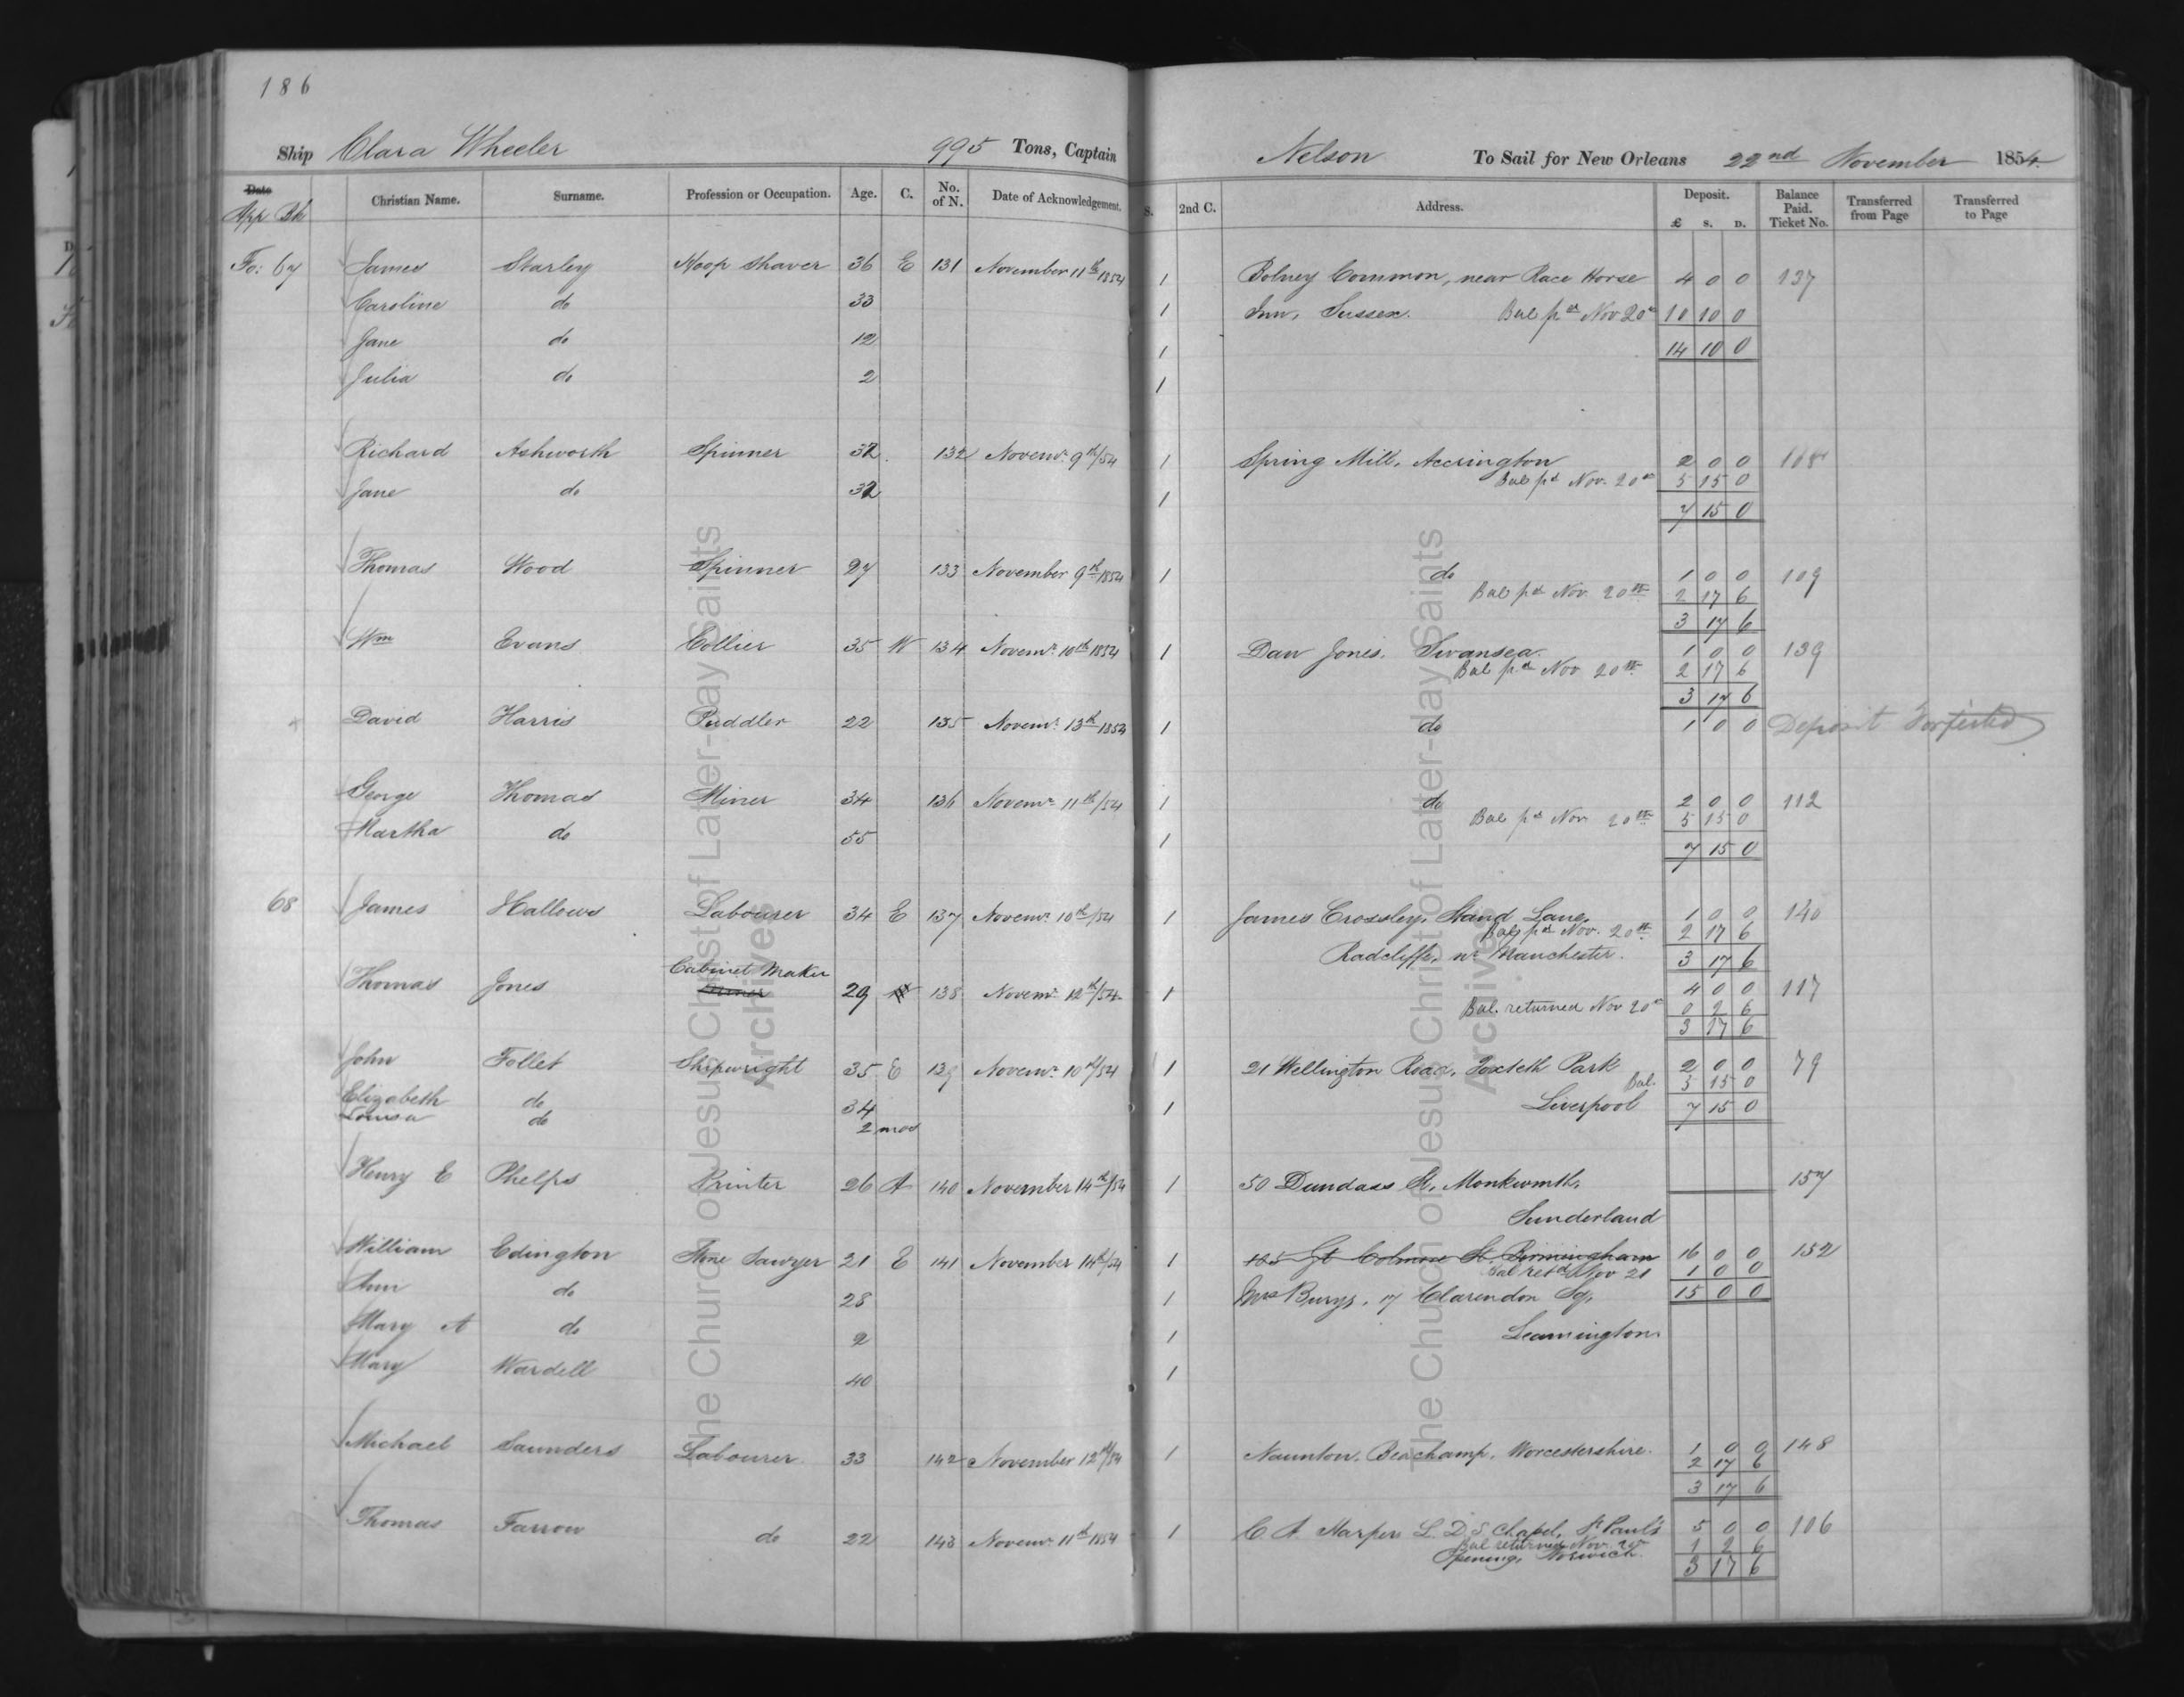 186
Ship Clara Wheeler 995 Tons, Captain Nelson To Sail for New Orleans 22nd November 1854.
Date Christian Name. Surname. Profession or Occupation. Age. C. No. of N. Date of Acknowledgement. S. 2nd C. Address. Deposit. £ S. D. Balance Paid. Ticket No. Transferred from Page Transferred to Page
App Bk
Fo: 67 James Starley Hoop Shaver 36 E 131 November 11th 1854 1 Bolney Common, near Race Horse 4 0 0 137
Caroline do 33 1 Inn, Sussex. Bal pd Nov 20th 10 10 0
Jane do 12 1 14 10 0
Julia do 2 1
Richard Ashworth Spinner 32 132 Novemr. 9th/54 1 Spring Mill, Accrington 2 0 0
Bal pd Nov. 20th 5 15 0
Jane do 32 1 7 15 0
Thomas Wood Spinner 27 133 November 9th 1854 1 do 1 0 0 109
Bal pd Nov 20th 2 17 6
3 17 6
Wm Evans Collier 35 W 134 Novemr. 10th 1854 1 Dan Jones, Swansea. 1 0 0 139
Bal pd Nov 20th 2 17 6
3 17 6
David Harris Puddler 22 135 Novemr. 13th 1854 1 do 1 0 0 Deposit Forfeited
George Thomas Miner 34 136 Novemr. 11th/54 1 do 2 0 0 112
Bal pd Nov 20th 5 15 0
Martha do 55 1 7 15 0
68 James Hallows Labourer 34 E 137 Novemr. 10th/54 1 James Crossley, Stand Lane, 1 0 0 140
Bal pd Nov. 20th 2 17 6
Radcliffe, nr Manchester. 3 17 6
Cabinet Maker
Thomas Jones 29 138 Novemr. 12th/54 1 4 0 0 117
Bal. returned Nov 20th 0 2 6
3 17 6
John Follet Shipwright 35 E 139 Novemr. 10th/54 1 21 Wellington Road, Toxteth Park 2 0 0 79
Bal. 5 15 0
Elizabeth do 34 1 Liverpool 7 15 0
Louisa do 2 mos
Henry E Phelps Printer 26 A 140 November 14th/54 1 50 Dundass St, Monkwmth, 157
Sunderland
William Edington Stone Sawyer 21 E 141 November 14th/54 1 125 Gt Colmore St. Birmingham 16 0 0 152
Bal retd Nov 21 1 0 0
Ann do 28 1 Mrs Burys, 17 Clarendon Sq, 15 0 0
Mary A do 2 1 Leamington.
Mary Wardell 40 1
Michael Saunders Labourer 33 142 November 12th/54 1 Naunton, Beachamp, Worcestershire. 1 0 0 148
2 17 6
3 17 6
Thomas Farrow do 22 143 Novemr. 11th 1854 1 C. A. Harper L. D. S. Chapel, St Paul's 5 0 0 106
Bal returned Nov. 20 1 2 6
Opening, Norwich. 3 17 6
The Church of Jesus Christ of Latter-day Saints
Archives
The Church of Jesus Christ of Latter-day Saints
Archives